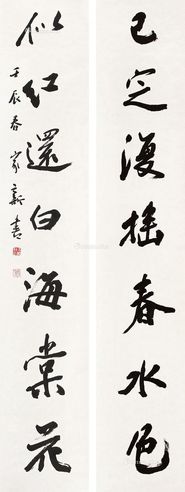 已定復摇春水色
似红還白海棠花
壬辰春 家新書